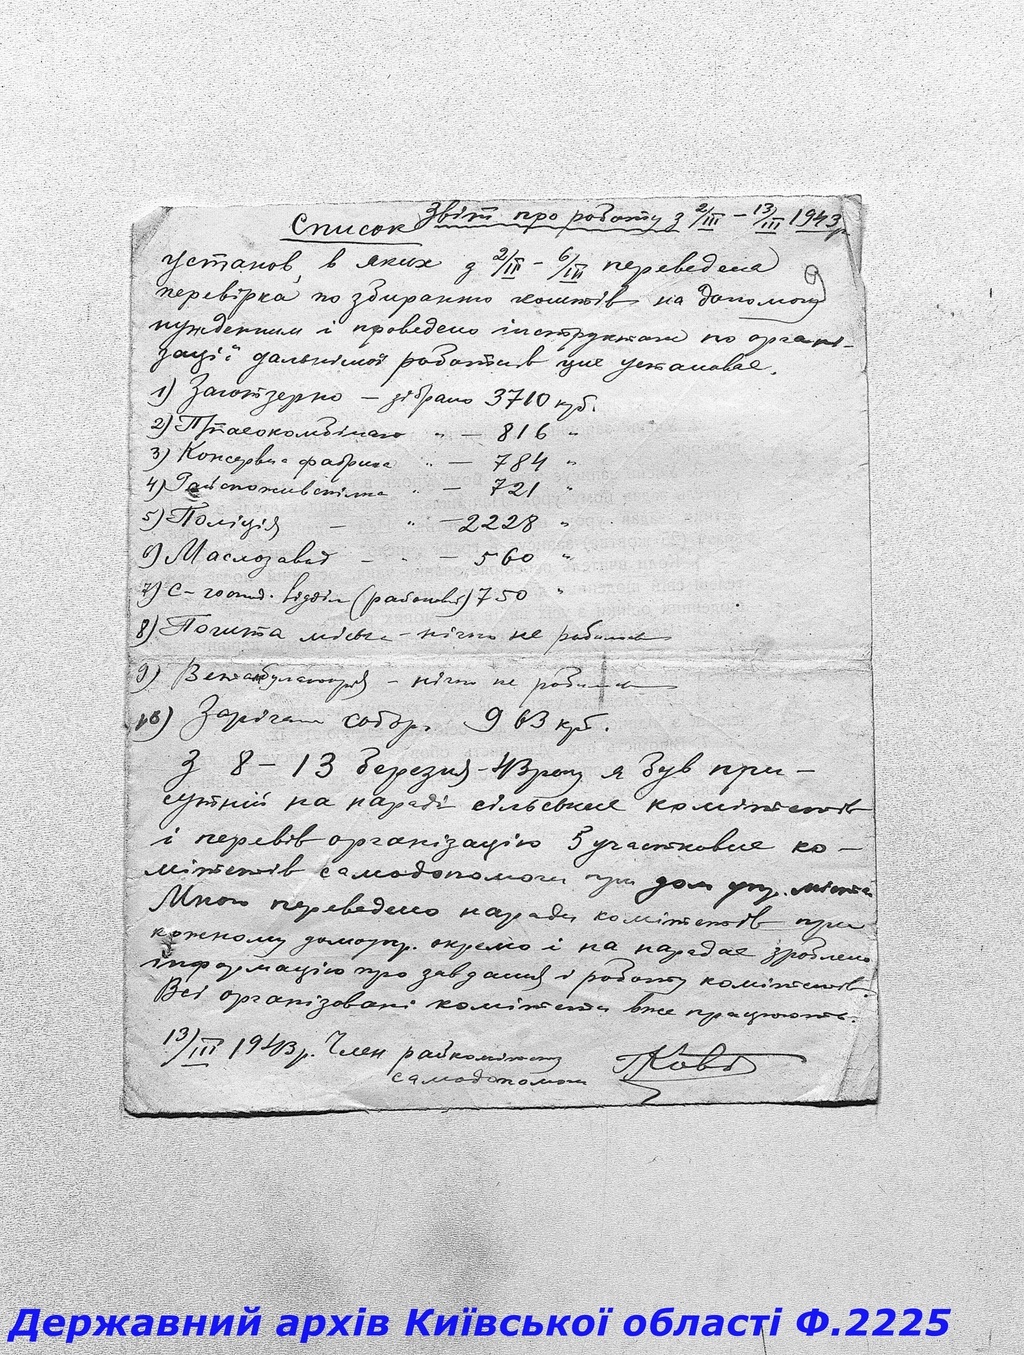 Звіт про роботу з 2/III – 13/III 1943 р.
Список
9
установ, в яких з 2/III – 6/III переведена
перевірка по збиранню коштів на допомогу
нужденним і проведено інструктаж по органі-
зації дальнішої роботи в цих установах.
1) Заготзерно – зібрано 3710 крб.
2) Птахокомбінат " – 816 "
3) Консервна фабрика " – 784 "
4) Райспоживспілка " – 721 "
5) Поліція – " – 2228 "
6) Маслозавод – " – 560 "
7) С-господ. відділ (районовий) 750 "
8) Пошта міська – нічого не робила
9) – нічого не робила
10) собор. 963 крб.
З 8 – 13 березня – 43 року я був при-
сутній на нараді сільських комітетів
і перевів організацію 5 участкових ко-
мітетів самодопомоги при дом упр. міста
Мною переведено наради комітетів при
кожному домоупр. окремо і на нарадах зроблено
інформацію про завдання і роботу комітетів.
Всі організовані комітети вже працюють.
13/III 1943 р. Член райкомітету
самодопомоги
Державний архів Київської області Ф.2225